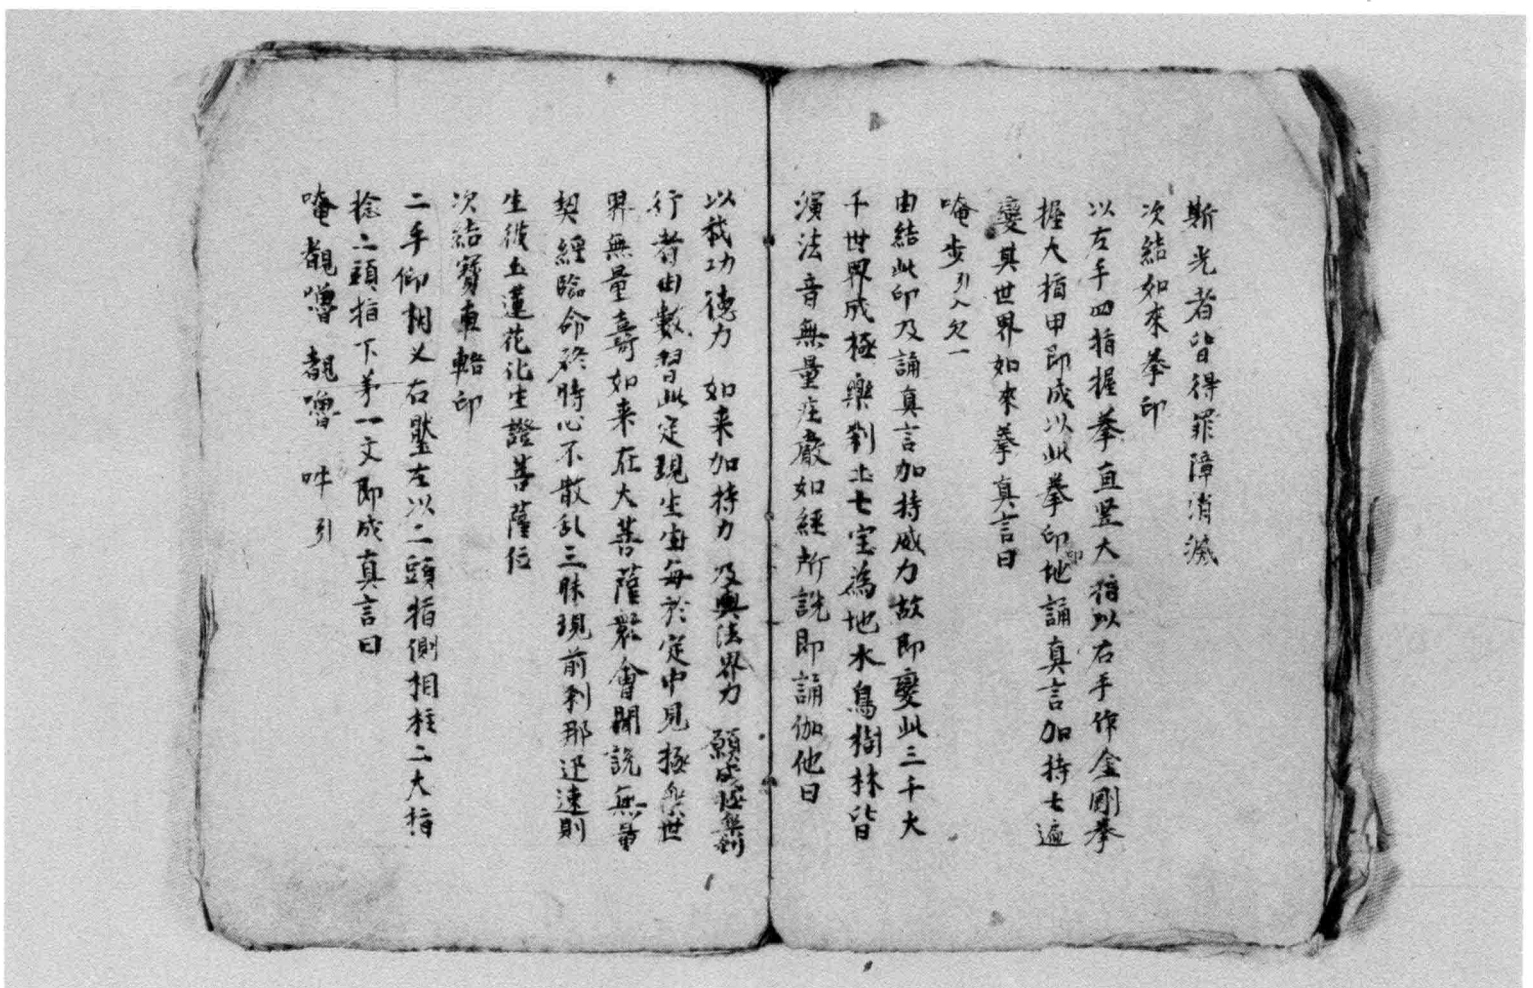 斯光者皆得罪障消滅
次結如來拳印
以左手四指握拳直竪大指以右手作金剛拳
握大指甲即成以此拳印印地誦真言加持七遍
變其世界如來拳真言曰
唵步引入欠一
由結此印及誦真言加持威力故即變此三千大
千世界成極樂刹土七宝為地水鳥樹林皆
演法音無量庄嚴如經所說即誦伽他曰
以我功德力 如来加持力 及與法界力 願成極樂刹
行者由數習此定現生每於定中見極樂世
界無量壽如来在大菩薩衆會聞說無量
契經臨命終時心不散乱三昧現前刹那迅速則
生彼土蓮花化生證菩薩位
次結寶車輅印
二手仰相叉右壓左以二頭指側相柱二大指
捻二頭指下苐一文即成真言曰
唵覩嚕覩嚕 吽 引